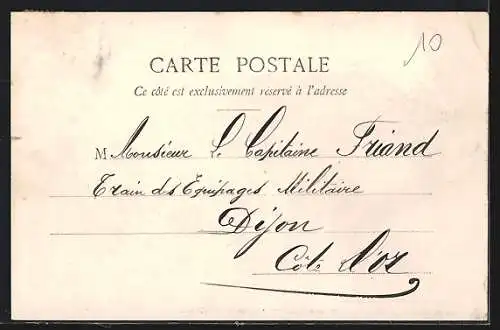 10
CARTE POSTALE
Ce côté est exclusivement réservé à l'adresse
M Monsieur le Capitaine Friand
Train des Equipages Militaire
Dijon
Côte d'Or